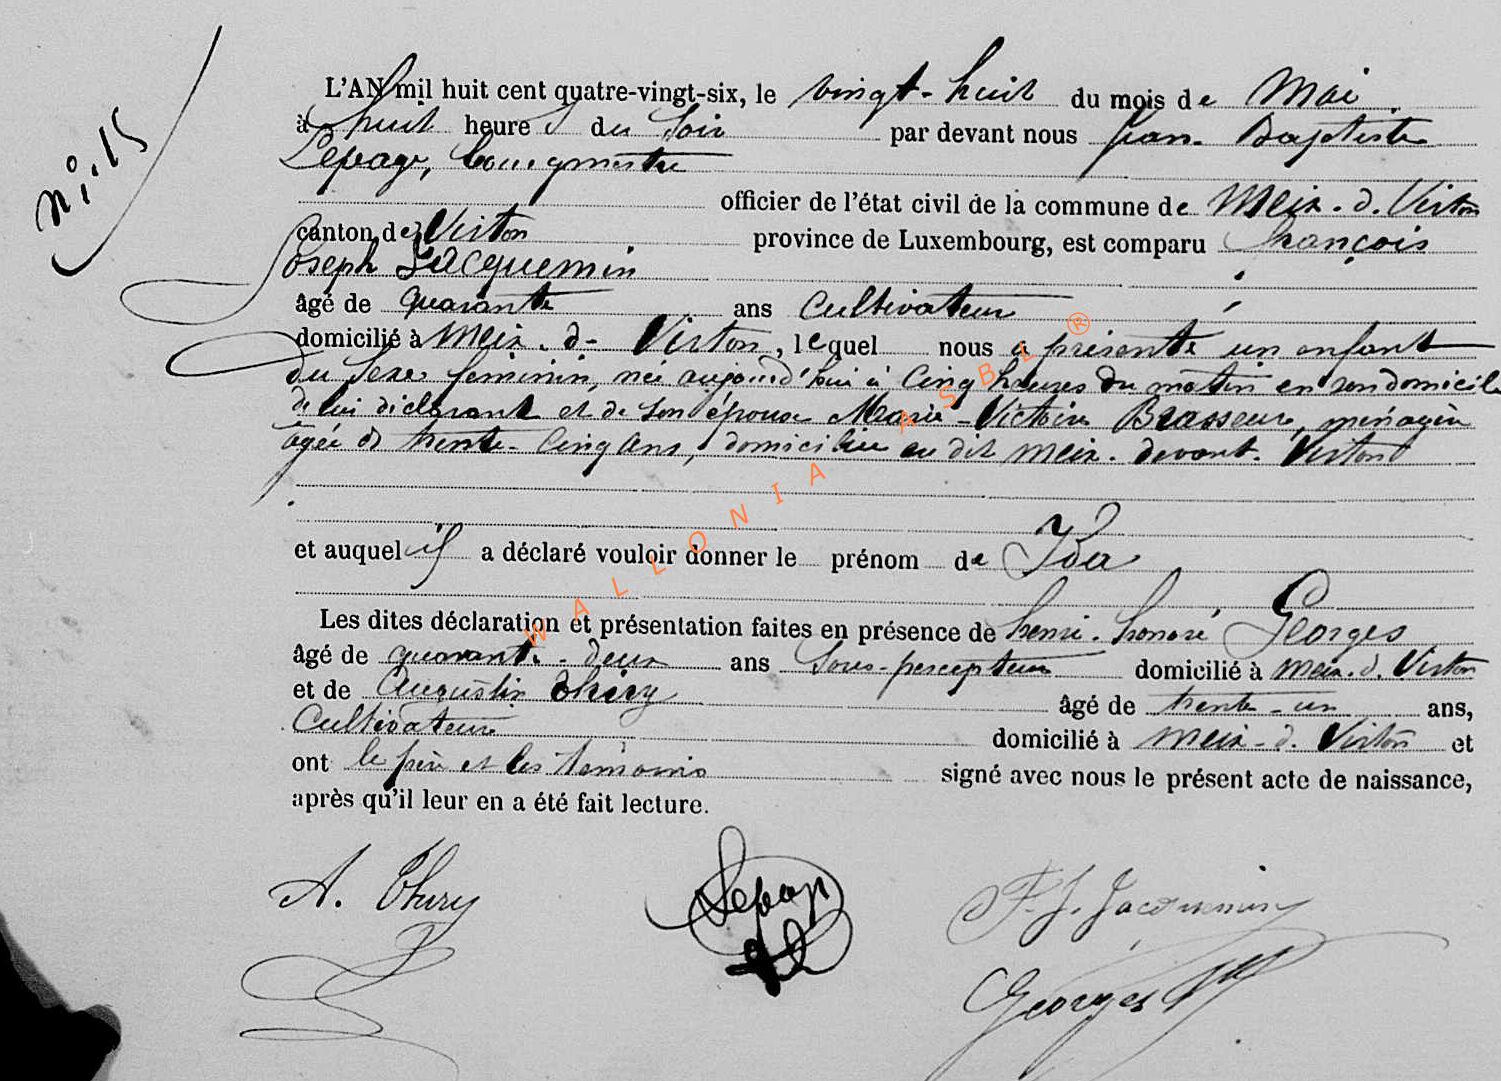 n°. 15
L'AN mil huit cent quatre-vingt-six, le vingt-huit du mois de Mai
à huit heures du Soir par devant nous Jean-Baptiste
Lepage, bourgmestre
officier de l'état civil de la commune de Meix-d.Virton
canton de Virton province de Luxembourg, est comparu François
Joseph Jacquemin
âgé de quarante ans Cultivateur
domicilié à Meix-d-Virton, lequel nous a présenté un enfant
du sexe féminin, née aujourd'hui à Cinq heures du matin en son domicile
de lui déclarant et de son épouse Marie-Victoire Brasseur, ménagère
âgée de trente-Cinq ans, domiciliée au dit Meix-devant-Virton
et auquel il a déclaré vouloir donner le prénom de Ida
Les dites déclaration et présentation faites en présence de henri-honoré Georges
âgé de quarante-deux ans Sous-percepteur domicilié à Meix-d.Virton
et de Augustin Thiry âgé de trente-un ans,
Cultivateur domicilié à Meix-d.Virton et
ont le père et les témoins signé avec nous le présent acte de naissance,
après qu'il leur en a été fait lecture.
A. Thiry Lepage F. J. Jacquemin
Georges
WALLONIA ASBL ®